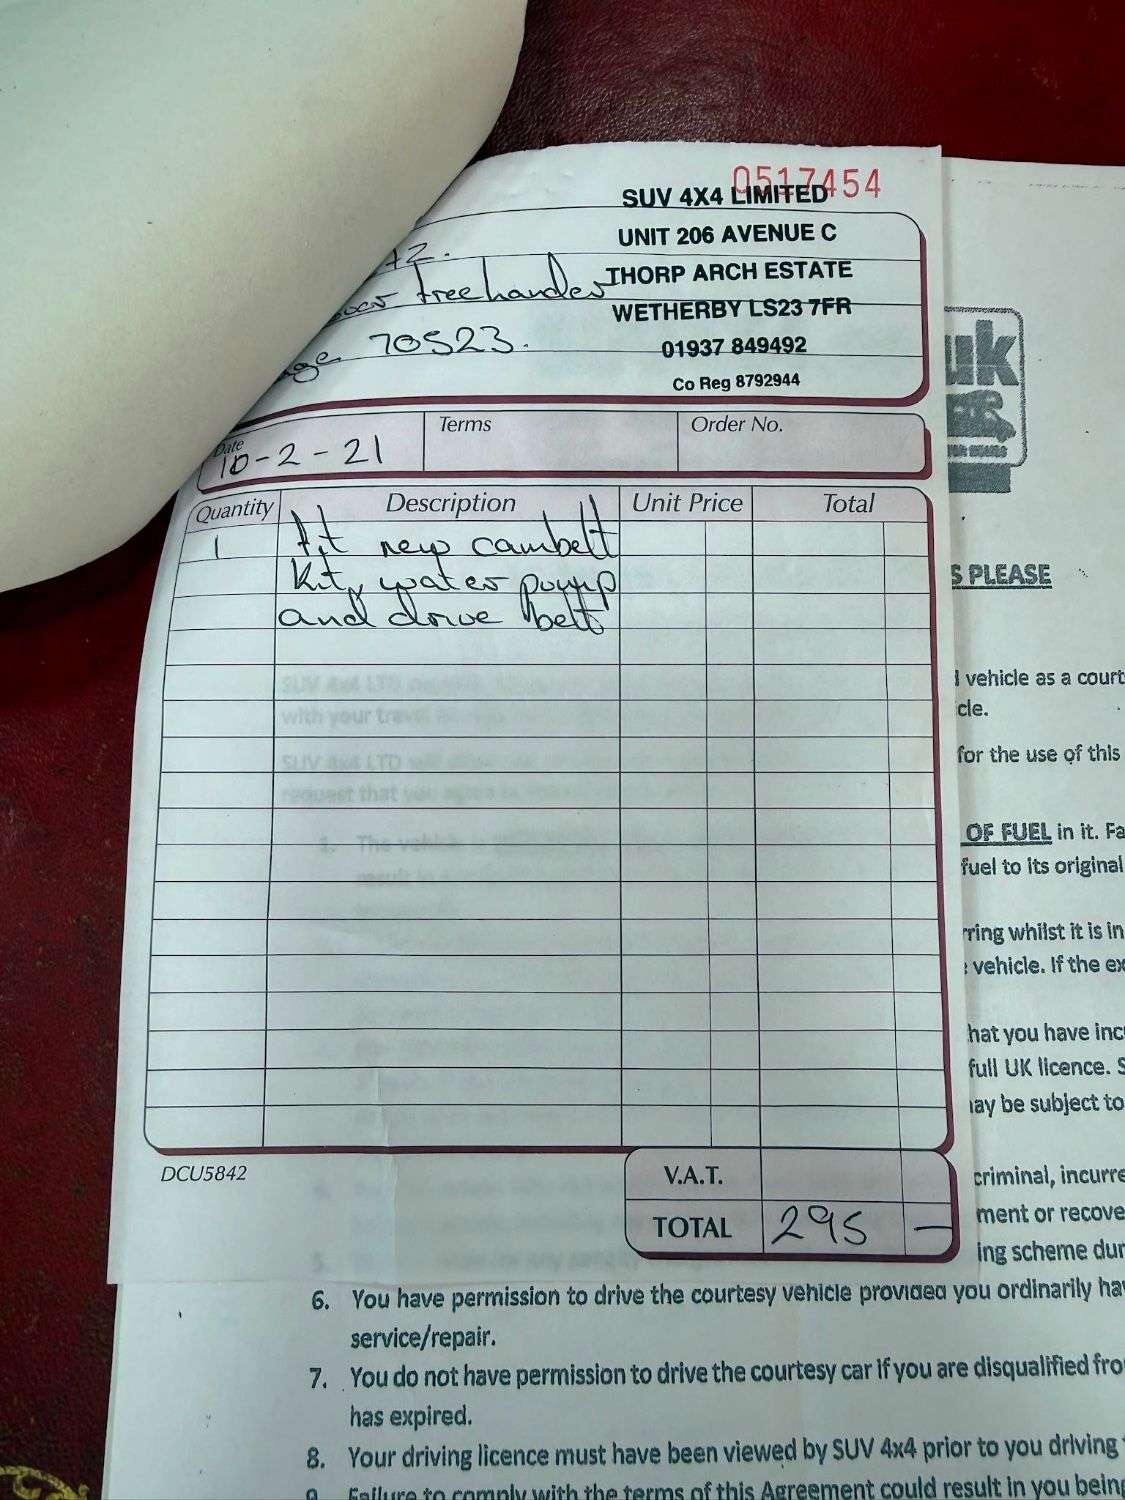 0517454
SUV 4X4 LIMITED
UNIT 206 AVENUE C
THORP ARCH ESTATE
WETHERBY LS23 7FR
01937 849492
Co Reg 8792944
freelander
70523.
Date
10-2-21
Terms
Order No.
Quantity Description Unit Price Total
1 fit new cambelt
kit, water pump
and drive belt
DCU5842
V.A.T.
TOTAL 295 —
uk
S PLEASE
vehicle as a court
cle.
for the use of this
OF FUEL in it. Fa
fuel to its original
rring whilst it is in
vehicle. If the ex
hat you have inc
full UK licence. S
ay be subject to
criminal, incurre
ment or recove
ing scheme dur
SUV 4x4 LTD
with your trav
SUV 4x4 LTD
request that you
1. The vehicle
6. You have permission to drive the courtesy vehicle provided you ordinarily ha
service/repair.
7. You do not have permission to drive the courtesy car if you are disqualified fro
has expired.
8. Your driving licence must have been viewed by SUV 4x4 prior to you driving
9. Failure to comply with the terms of this Agreement could result in you being